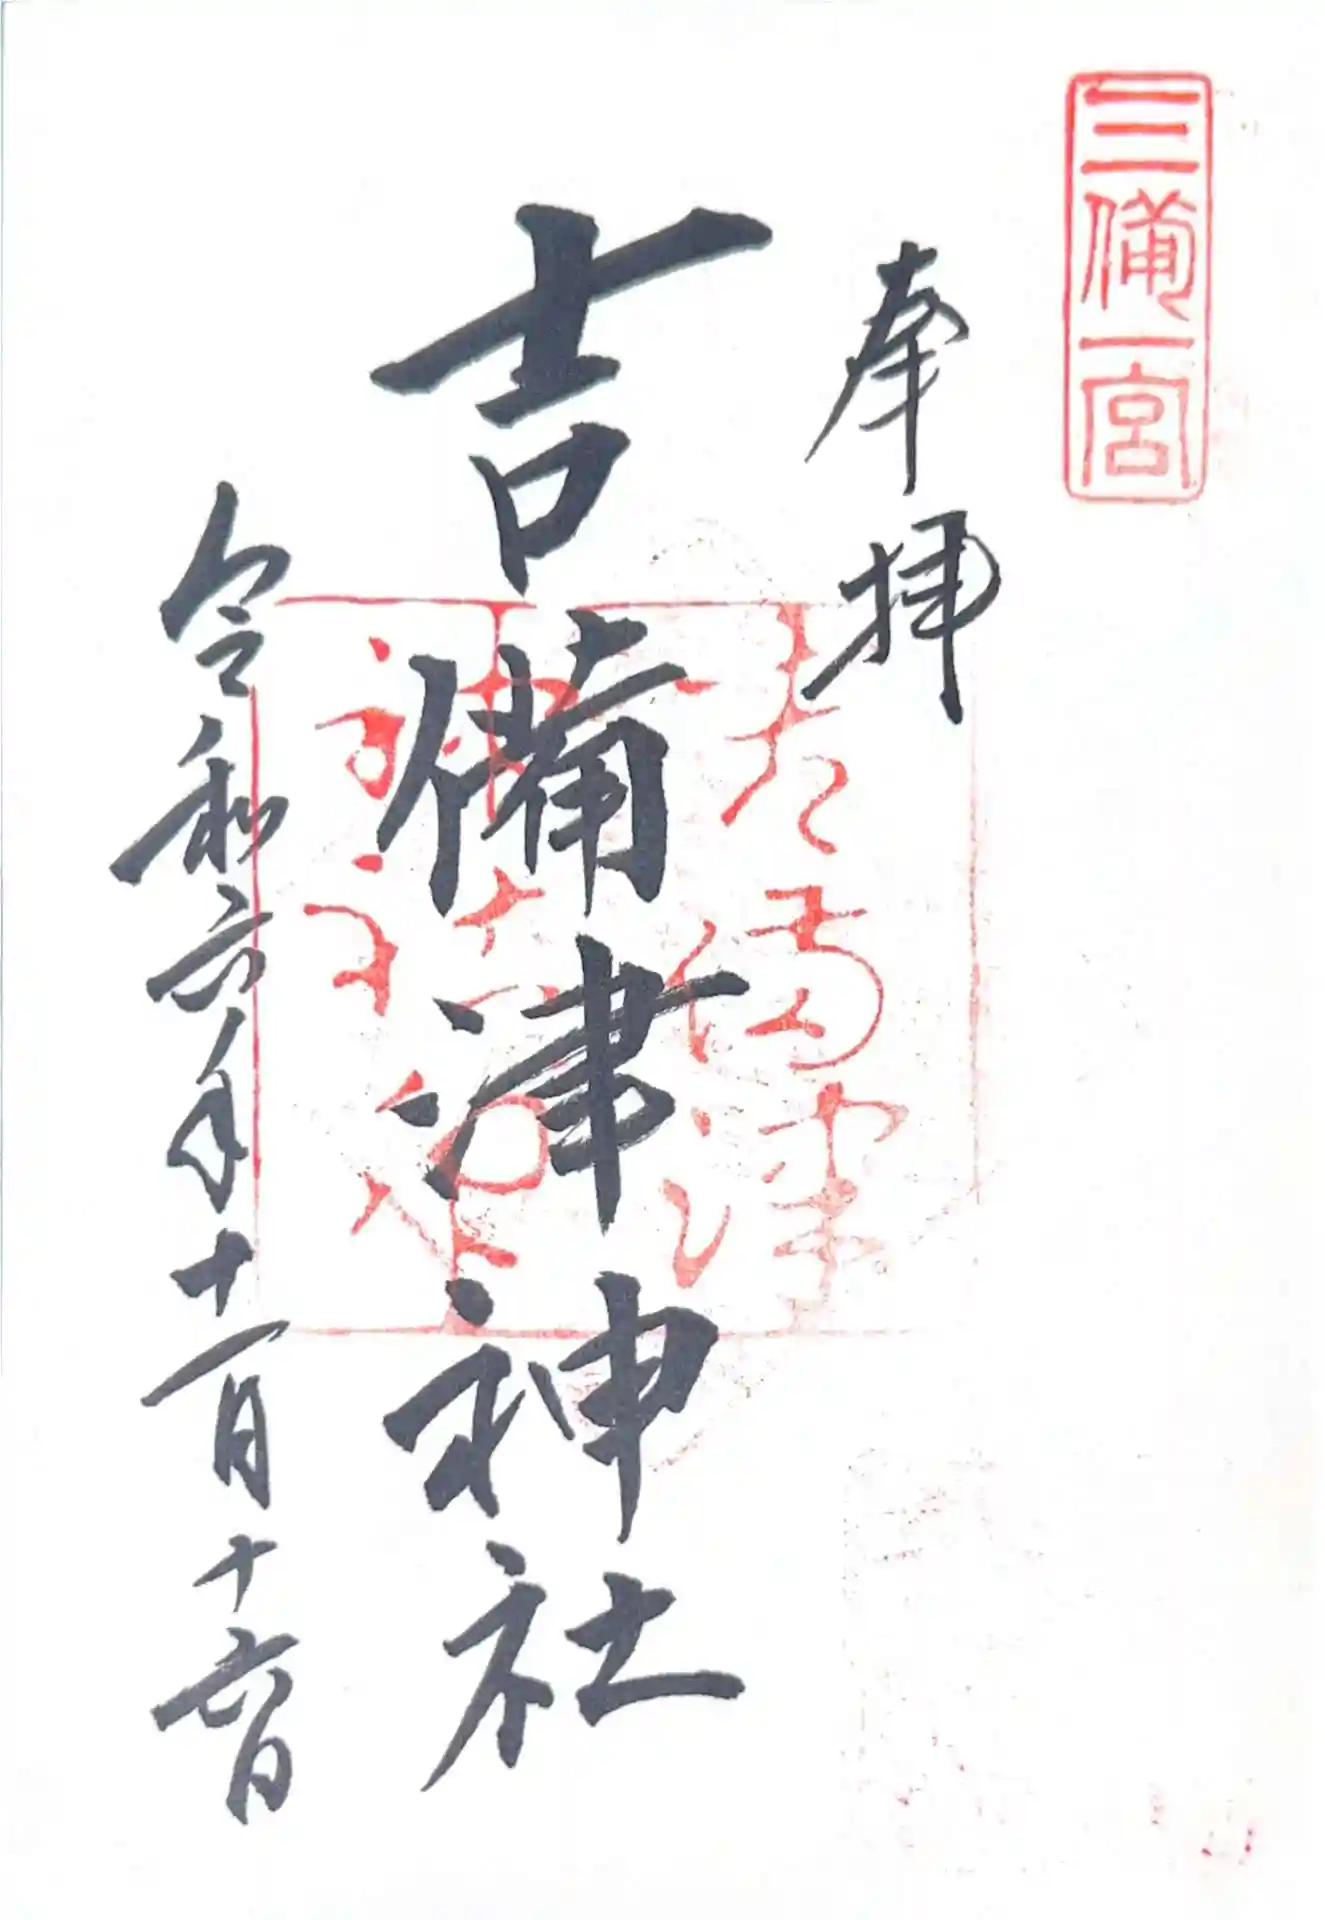 三備一宮
奉拝
吉備津神社
令和六年十一月十六日